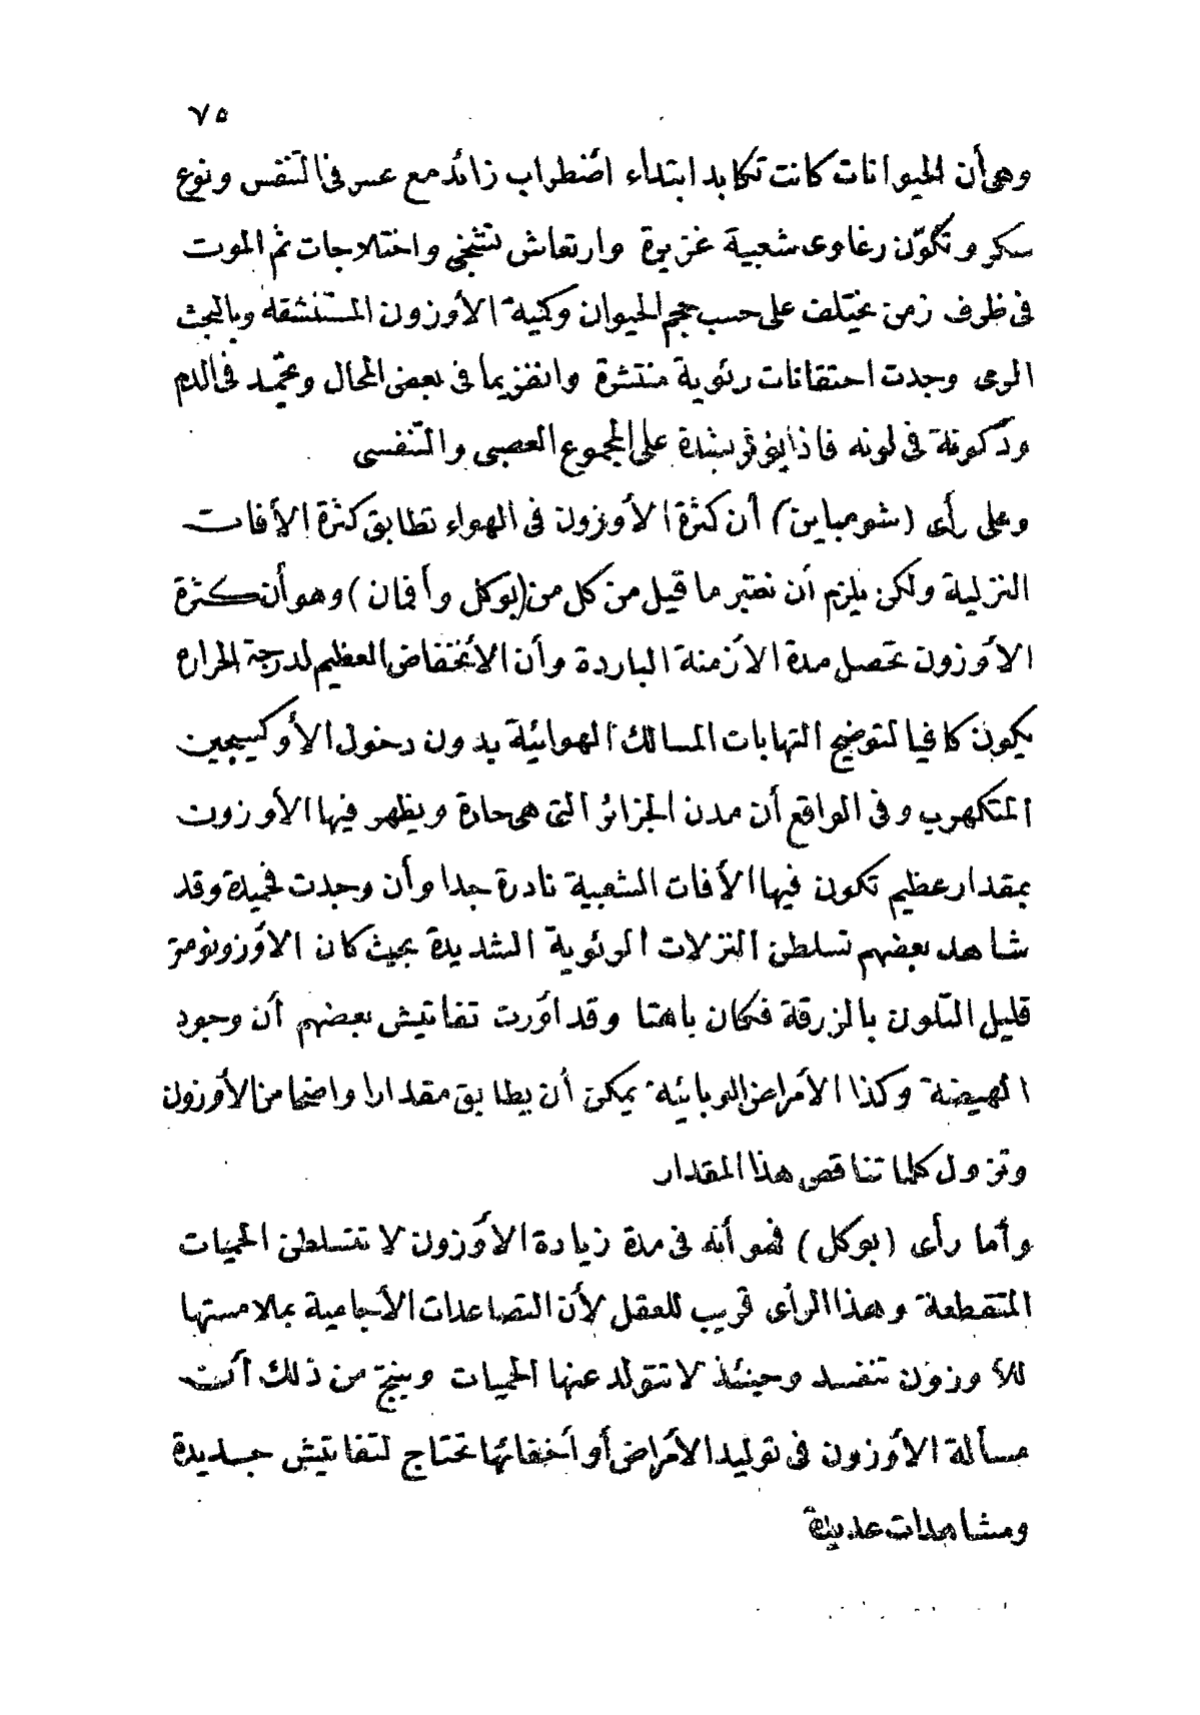 ٧٥
وهى أن الحيوانات كانت تكابد ابتداء اضطراب زائد مع عسر فى التنفس ونوع
سكر وتكوّن رغاوى شعبية غزيرة وارتعاش تشنجى واختلاجات ثم الموت
فى ظرف زمن يختلف على حسب حجم الحيوان وكمية الأوزون المستنشقة وبالبحث
الرمى وجدت احتقانات رئوية منتشرة وانفزيما فى بعض المحال وتجمد فى الدم
ودكونة فى لونه فاذا يؤثر بشدة على المجموع العصبى والتنفسى
وعلى رأى (شومباين) أن كثرة الأوزون فى الهواء تطابق كثرة الأفات
النزلية ولكن يلزم أن نعتبر ما قيل من كل من (بوكل وأفمان) وهو أن كثرة
الأوزون تحصل مدة الازمنة الباردة وأن الأنخفاض العظيم لدرجة الحراره
يكون كافيا لتوضيح التهابات المسالك الهوائية بدون دخول الأوكسيجين
المتكهرب وفى الواقع أن مدن الجزائر التى هى حارة ويظهر فيها الأوزون
بمقدار عظيم تكون فيها الأفات الشعبية نادرة جدا وأن وجدت فحميدة وقد
شاهد بعضهم تسلطن النزلات الرئوية الشديدة بحيث كان الاوزونومتر
قليل التلون بالزرقة فكان باهتا وقد أورت تفاتيش بعضهم أن وجود
الهيضة وكذا الأمراض الوبائية يمكن أن يطابق مقدارا واضحا من الأوزون
وتزول كلما تناقص هذا المقدار
وأما رأى (بوكل) فهو أنه فى مدة زيادة الأوزون لا تتسلطن الحميات
المتقطعة وهذا الرأى قريب للعقل لأن التصاعدات الأجامية بملامستها
للأوزون تنفسد وحينئذ لا تتولد عنها الحميات وينتج من ذلك أن
مسألة الأوزون فى توليد الأمراض أو أخفائها تحتاج لتفاتيش جديدة
ومشاهدات عديدة